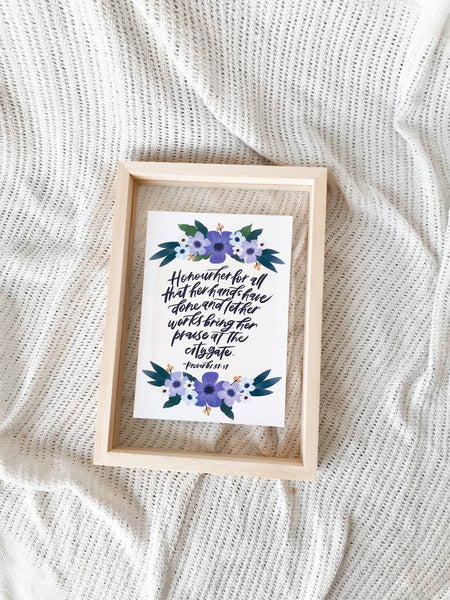 Honour her for all
that her hands have
done and let her
works bring her
praise at the
city gate.
-Proverbs 31:31